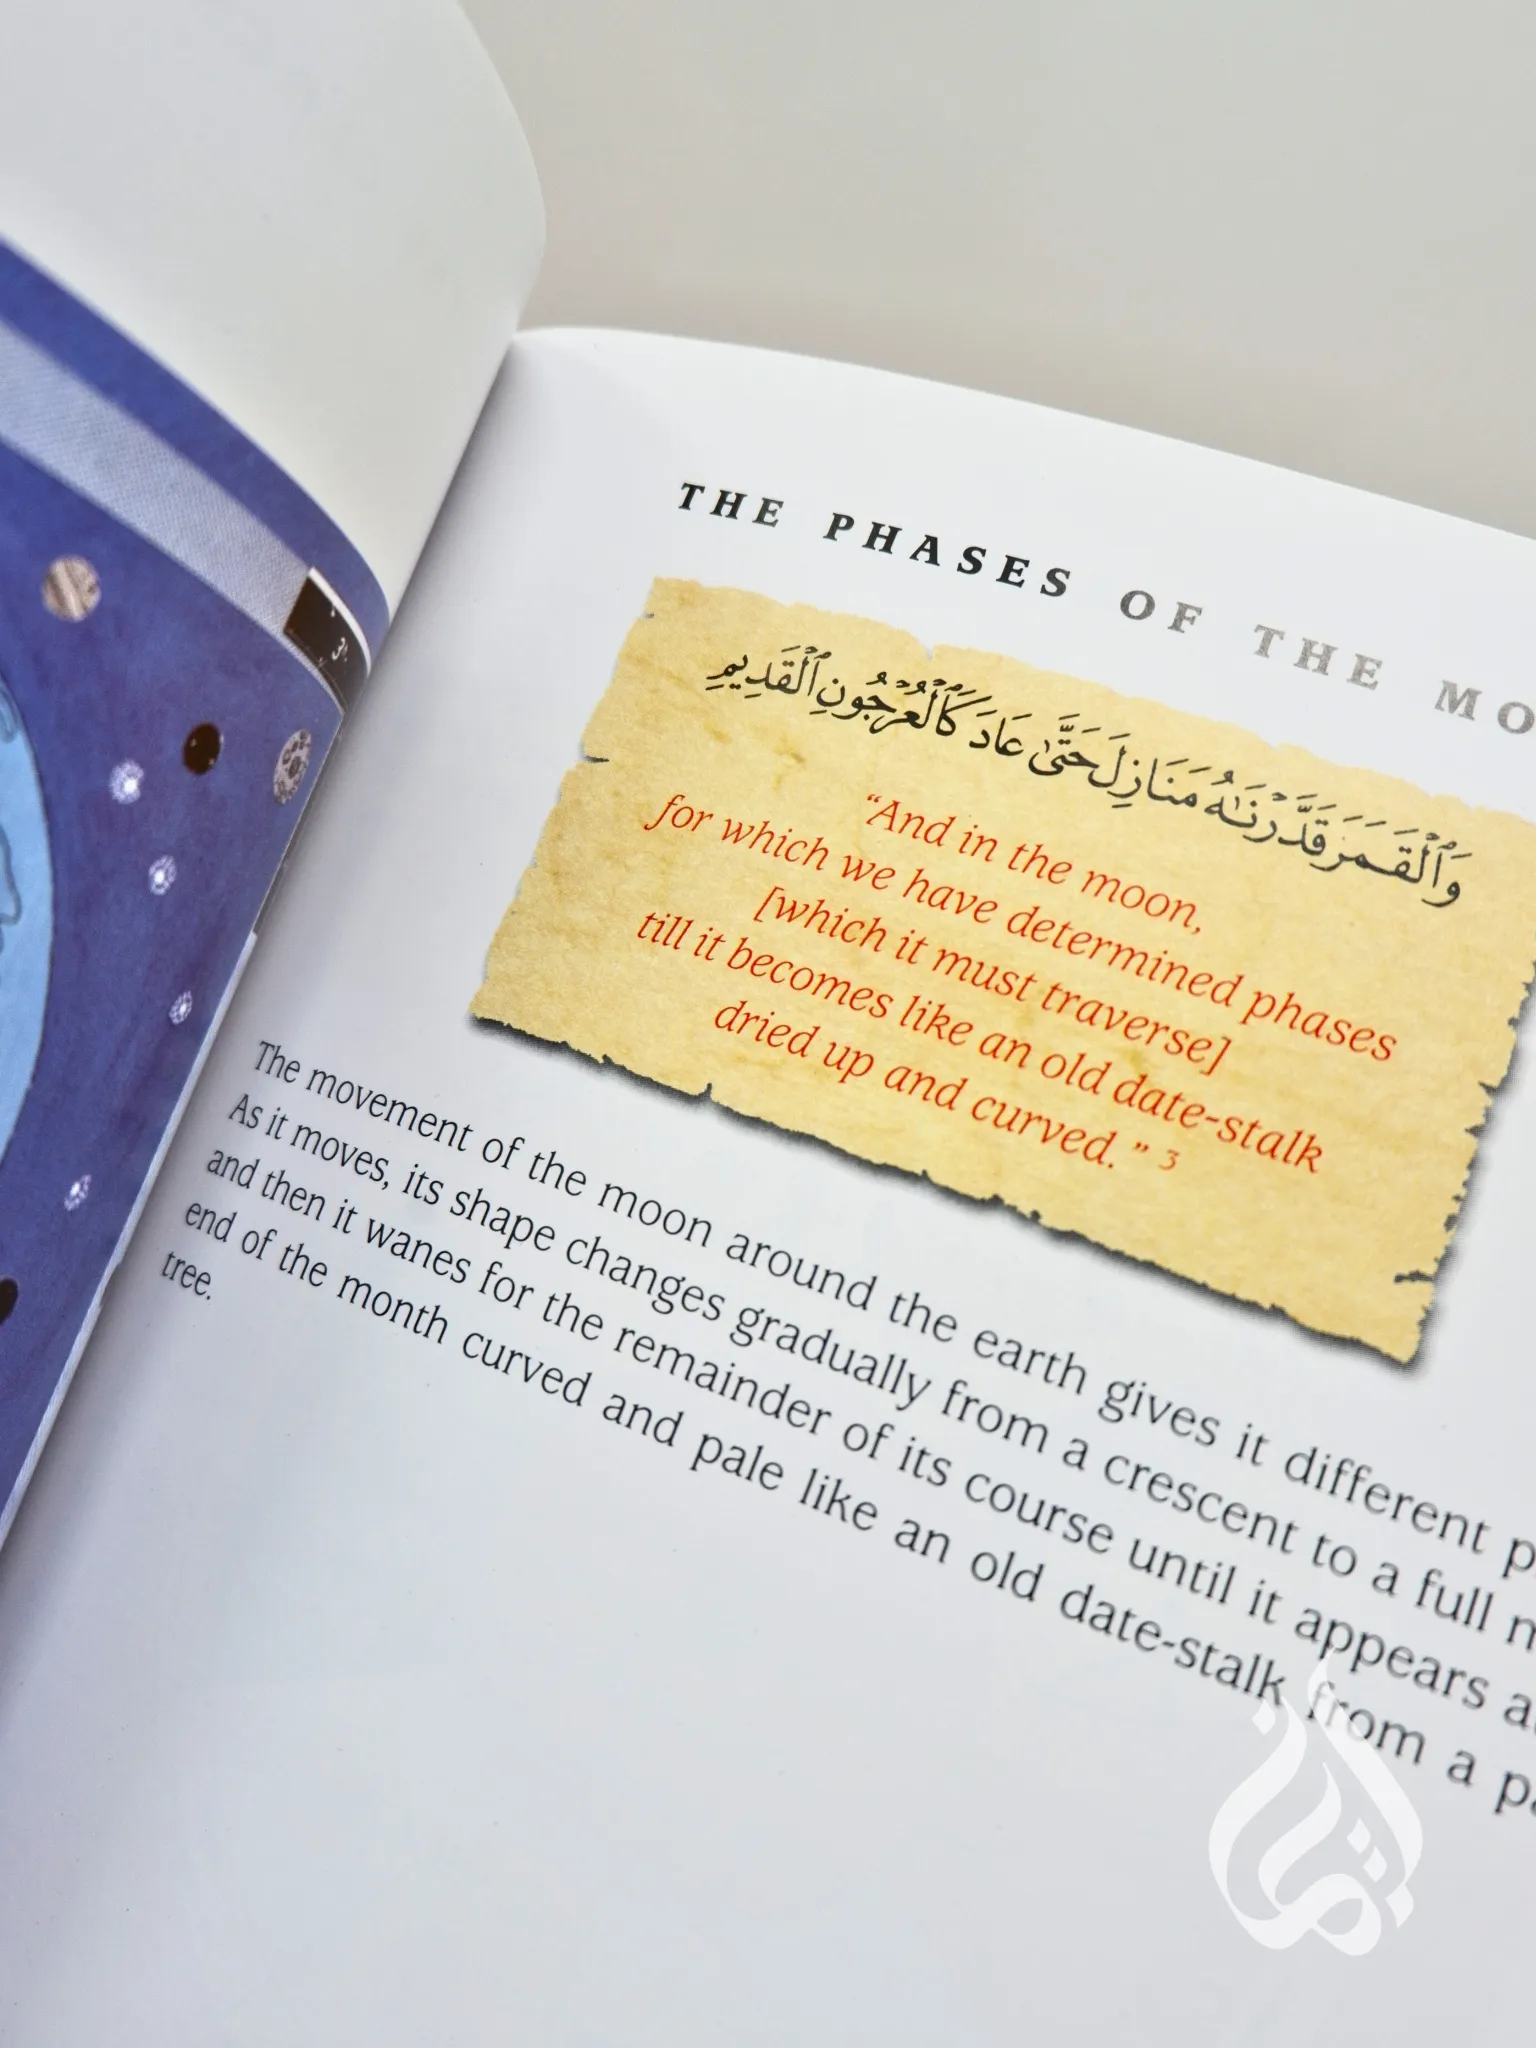 THE PHASES OF THE MO
وَٱلْقَمَرَ قَدَّرْنَٰهُ مَنَازِلَ حَتَّىٰ عَادَ كَٱلْعُرْجُونِ ٱلْقَدِيمِ
“And in the moon,
for which we have determined phases
[which it must traverse]
till it becomes like an old date-stalk
dried up and curved.” 3
The movement of the moon around the earth gives it different p
As it moves, its shape changes gradually from a crescent to a full m
and then it wanes for the remainder of its course until it appears a
end of the month curved and pale like an old date-stalk from a pa
tree.